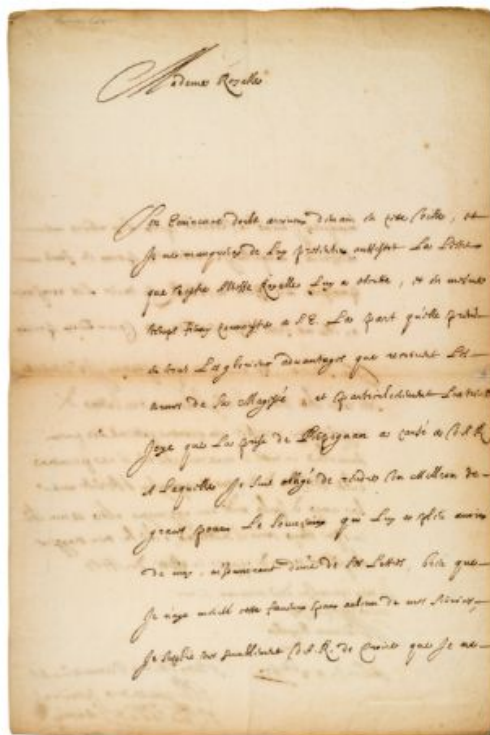 Madame Royalle
Son Eminence doibt arriver demain en cette ville, et
Je ne manqueray de luy presenter aussytost La Lettre
que Vostre Altesse Royalle luy a , et en mesme
temps feray connoistre a S.E. La part qu'elle prend
en tous Les glorieux advantages que Les
armes de Sa Majesté, et particulierement
Joye que La prise de Perpignan a causé a V.A.R.
A Laquelle Je suis obligé de rendre Un Million de
graces pour Le souvenir qu'il Luy a pleu avoir
de moy, de ses Lettres, bien que
Je n'aye merité cette faveur par aulcun de mes services,
Je supplie tres humblement V.A.R. de croire que Je ne